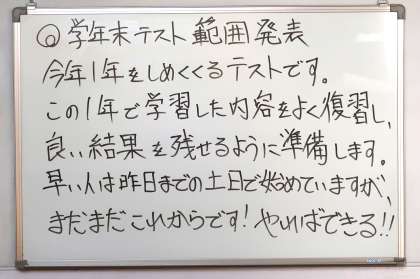 ◎学年末テスト範囲発表
今年1年をしめくくるテストです。
この1年で学習した内容をよく復習し、
良い結果を残せるように準備します。
早い人は昨日までの土日で始めていますが、
まだまだこれからです!やればできる!!